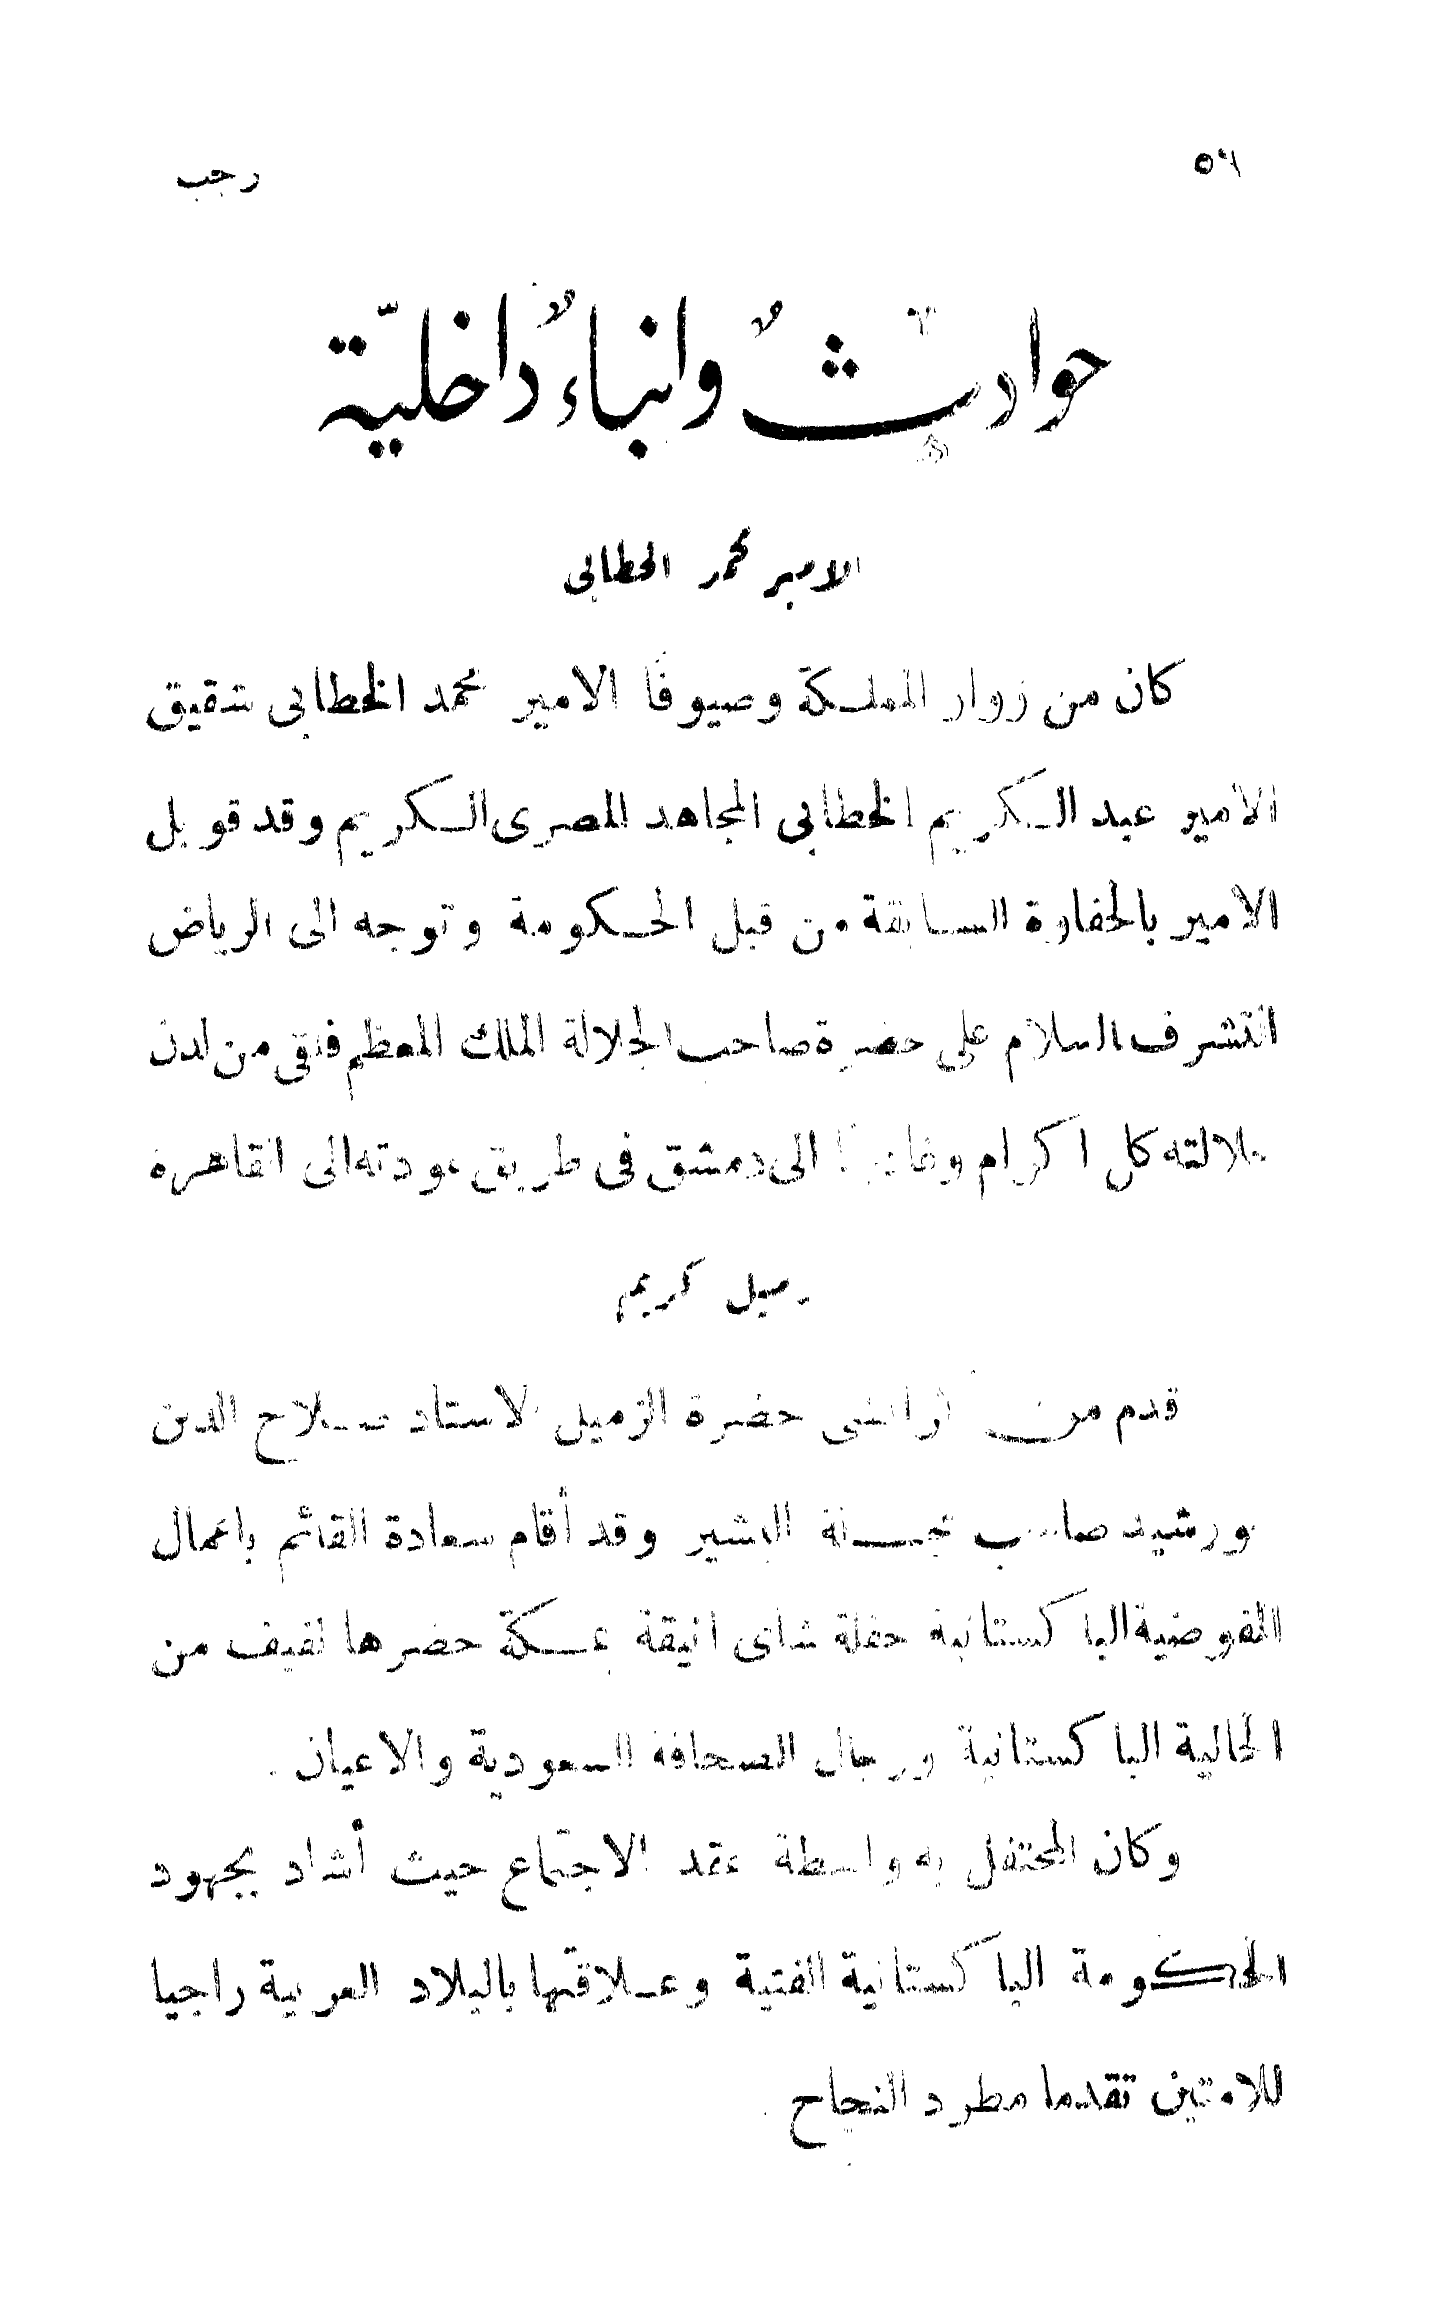 ٥٦
رجب
حوادثٌ وانباءٌ داخليّة
الامير محمد الخطابى
كان من زوار المملكة وضيوفا الامير محمد الخطابى شقيق
الامير عبد الكريم الخطابى المجاهد المصرى الكريم وقد قوبل
الامير بالحفاوة السابقة من قبل الحكومة وتوجه الى الرياض
للتشرف بالسلام على حضرة صاحب الجلالة الملك المعظم فلقى من لدن
جلالته كل اكرام الى دمشق فى طريق عودته الى القاهرة
زميل كريم
قدم من كراتشى حضرة الزميل الاستاد صلاح الدين
خورشيد صاحب مجلة البشير وقد أقام سعادة القائم باعمال
المفوضية الباكستانية حفلة شاى انيقة بمكة حضرها لفيف من
الجالية الباكستانية ورجال الصحافة السعودية والاعيان .
وكان المحتفل به واسطة عقد الاجتماع حيث أشاد بجهود
الحكومة الباكستانية الفتية وعلاقتها بالبلاد العربية راجيا
للامتين تقدما مطرد النجاح .